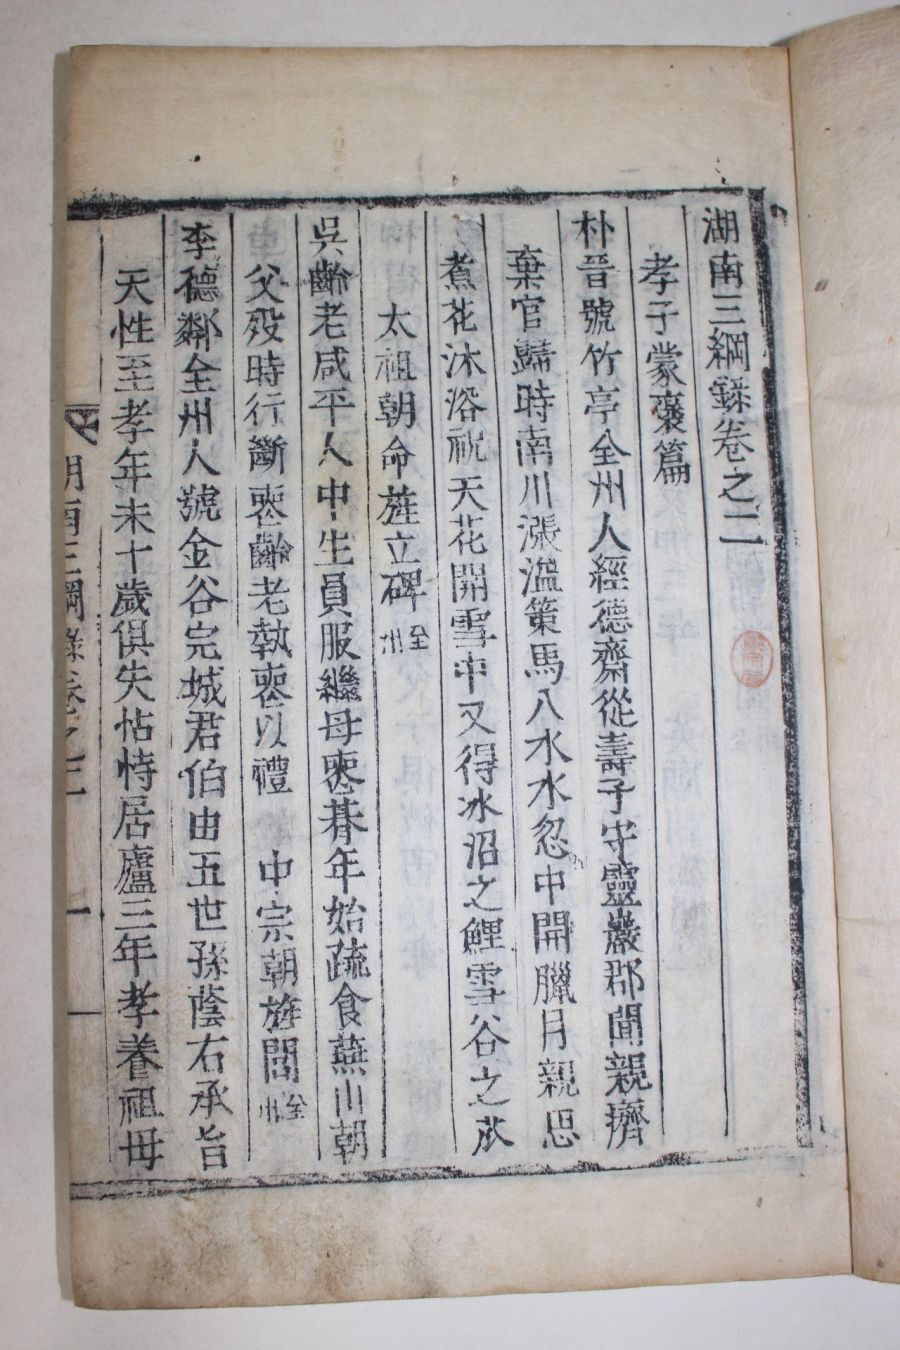 湖南三綱錄卷之二
孝子蒙褒篇
朴晉號竹亭全州人經德齋從壽子守靈巖郡聞親癠
棄官歸時南川漲溢策馬八水水忽中開臘月親思
煮花沐浴祝天花開雪中又得冰沼之鯉雪谷之苽
太祖朝命旌立碑全州
吳齡老咸平人中生員服繼母喪朞年始疏食燕山朝
父歿時行斷喪齡老執喪以禮 中宗朝旌閭全州
李德鄰全州人號金谷完城君伯由五世孫蔭右承旨
天性至孝年未十歲俱失怙恃居廬三年孝養祖母
湖南三綱錄卷之二 一